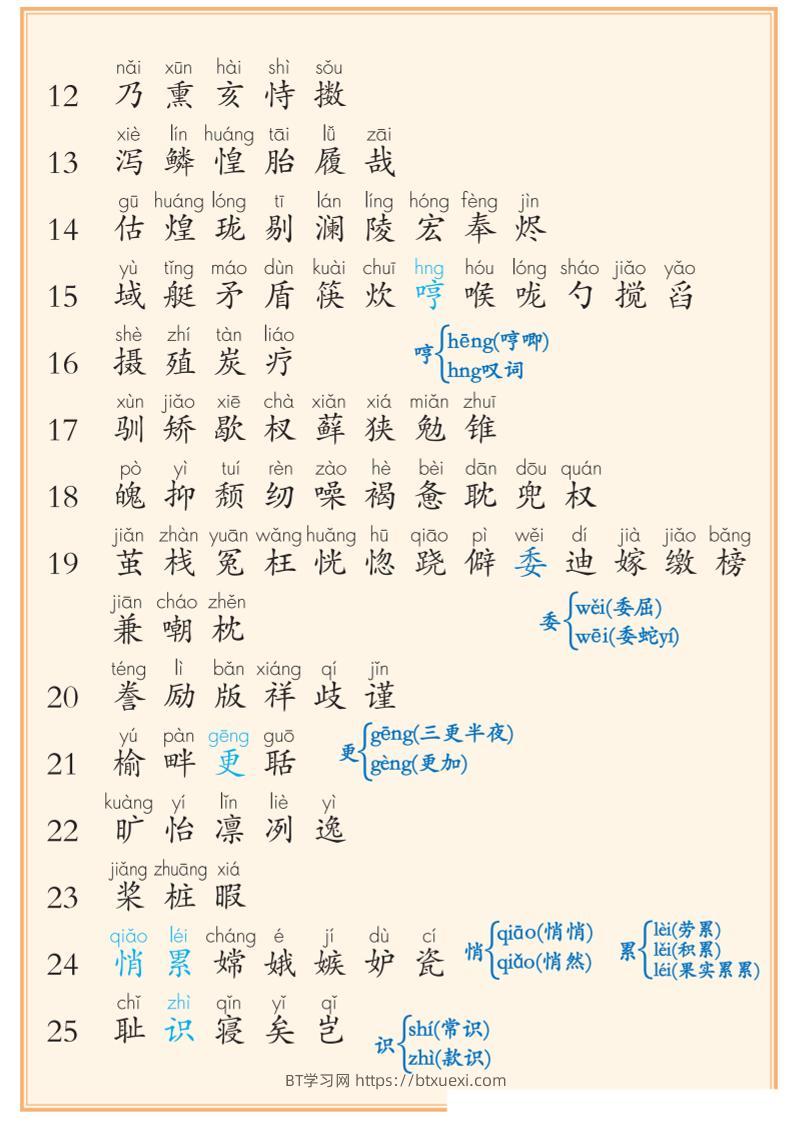 nǎi xūn hài shì sǒu
12 乃 熏 亥 恃 擞
xiè lín huáng tāi lǚ zāi
13 泻 鳞 惶 胎 履 哉
gū huáng lóng tī lán líng hóng fèng jìn
14 估 煌 珑 剔 澜 陵 宏 奉 烬
yù tǐng máo dùn kuài chuī hng hóu lóng sháo jiǎo yǎo
15 域 艇 矛 盾 筷 炊 哼 喉 咙 勺 搅 舀
shè zhí tàn liáo
16 摄 殖 炭 疗
哼 hēng(哼唧)
hng叹词
xùn jiǎo xiē chà xiǎn xiá miǎn zhuī
17 驯 矫 歇 杈 藓 狭 勉 锥
pò yì tuí rèn zào hè bèi dān dōu quán
18 魄 抑 颓 纫 噪 褐 惫 耽 兜 权
jiǎn zhàn yuān wǎng huǎng hū qiāo pì wěi dí jià jiǎo bǎng
19 茧 栈 冤 枉 恍 惚 跷 僻 委 迪 嫁 缴 榜
jiān cháo zhěn
兼 嘲 枕
委 wěi(委屈)
wēi(委蛇yí)
téng lì bǎn xiáng qí jǐn
20 誊 励 版 祥 歧 谨
yú pàn gēng guō
21 榆 畔 更 聒
更 gēng(三更半夜)
gèng(更加)
kuàng yí lǐn liè yì
22 旷 怡 凛 冽 逸
jiǎng zhuāng xiá
23 桨 桩 暇
qiǎo léi cháng é jí dù cí
24 悄 累 嫦 娥 嫉 妒 瓷
悄 qiāo(悄悄)
qiǎo(悄然)
累 lèi(劳累)
lěi(积累)
léi(果实累累)
chǐ zhì qǐn yǐ qǐ
25 耻 识 寝 矣 岂
识 shí(常识)
zhì(款识)
BT学习网 https://btxuexi.com